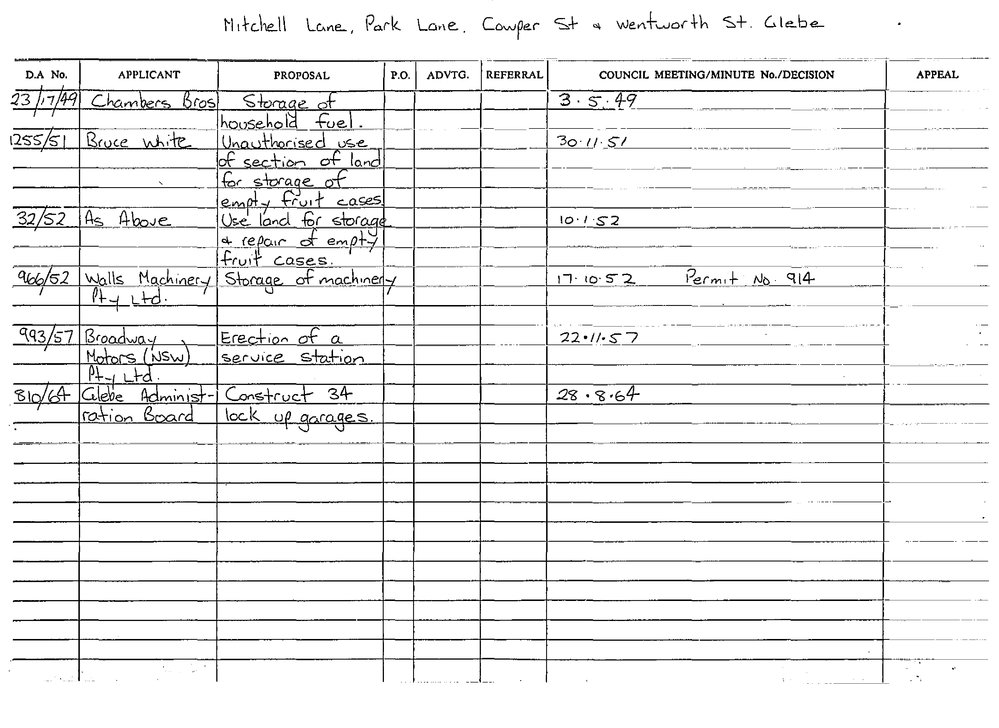 Mitchell Lane, Park Lane, Cowper St & Wentworth St. Glebe
D.A No. APPLICANT PROPOSAL P.O. ADVTG. REFERRAL COUNCIL MEETING/MINUTE No./DECISION APPEAL
23/17/49 Chambers Bros Storage of 3.5.49
household fuel.
1255/51 Bruce White Unauthorised use 30.11.51
of section of land
for storage of
empty fruit cases
32/52 As Above Use land for storage 10.1.52
& repair of empty
fruit cases.
966/52 Walls Machinery Storage of machinery 17.10.52 Permit No. 914
Pty Ltd.
993/57 Broadway Erection of a 22.11.57
Motors (NSW) service station
Pty Ltd.
810/64 Glebe Administ- Construct 34 28.8.64
ration Board lock up garages.